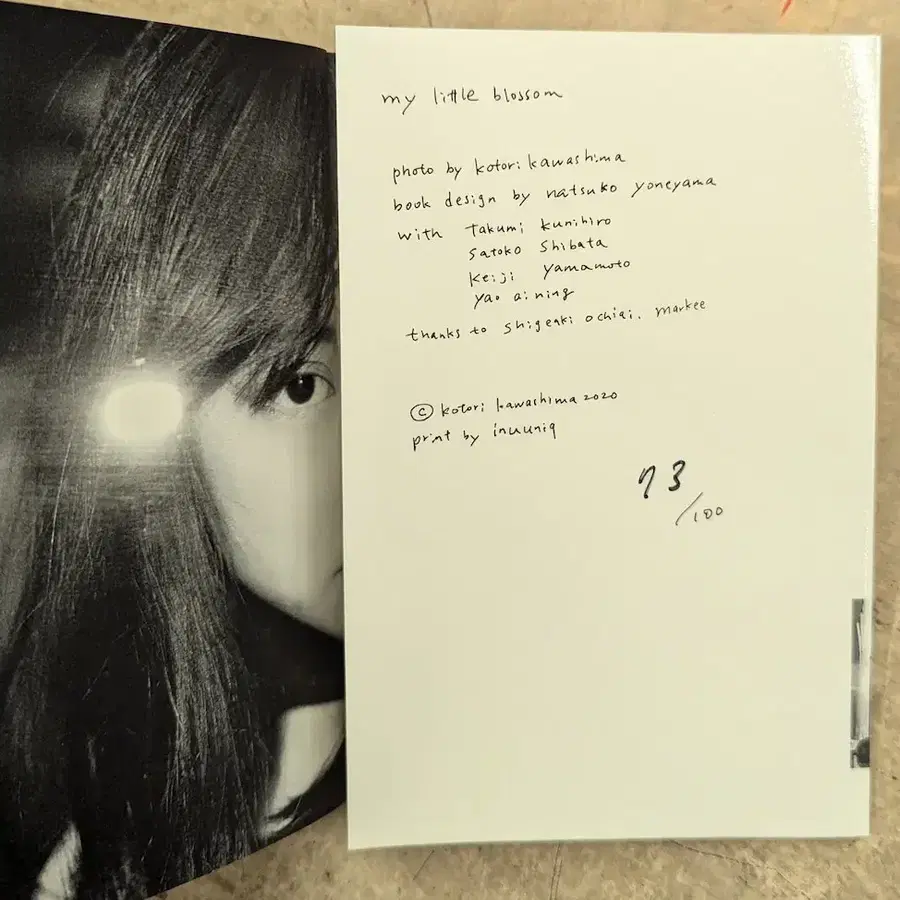 my little blossom
photo by kotori kawashima
book design by natsuko yoneyama
with Takumi kunihiro
Satoko Shibata
keiji yamamoto
yao aining
thanks to shigeaki ochiai. markee
© kotori kawashima 2020
print by inuuniq
73
/100